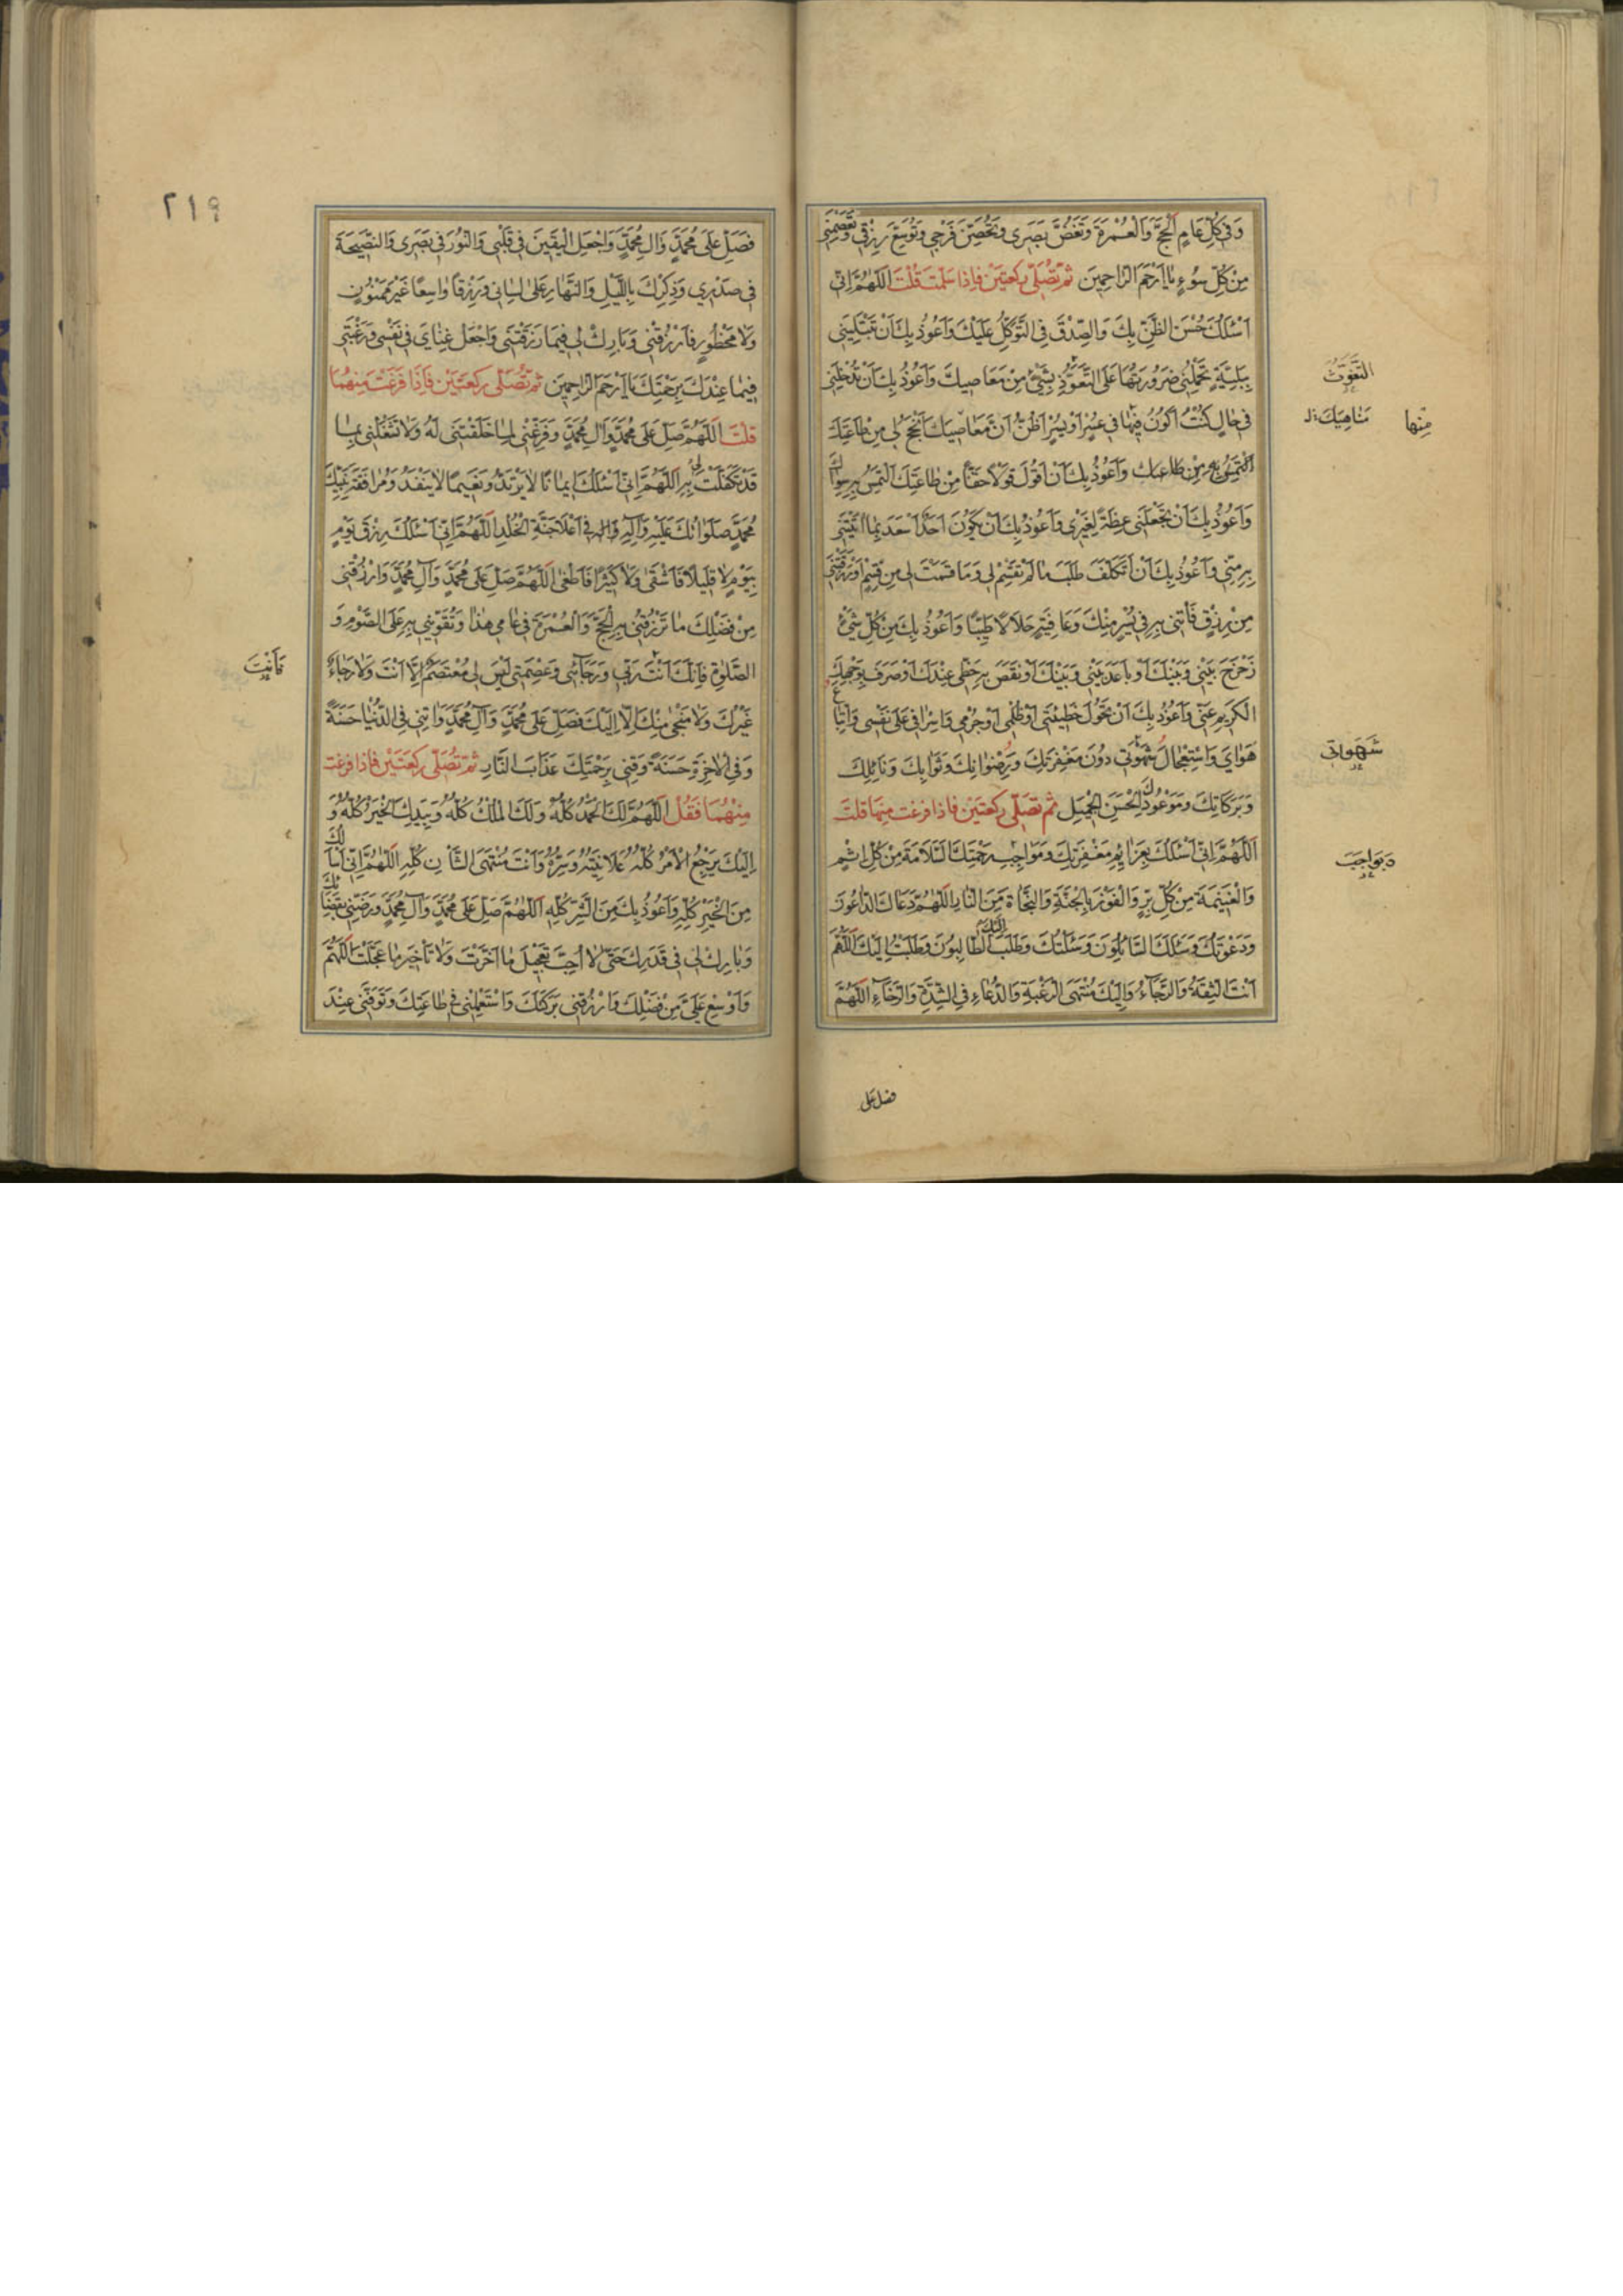 وَفي كُلِّ عَامٍ الْحَجَّ وَالْعُمْرَةَ وَتَغُضَّ بَصَرِي وَتُحَصِّنَ فَرْجِي وَتُوَسِّعَ رِزْقِي وَتَعْصِمَنِي
مِنْ كُلِّ سُوءٍ يَا أَرْحَمَ الرَّاحِمِينَ ثُمَّ تُصَلِّي رَكْعَتَيْنِ فَإِذَا سَلَّمْتَ قُلْتَ اَللّٰهُمَّ اِنّي
اَسْئَلُكَ حُسْنَ الظَّنِّ بِكَ وَالصِّدْقَ فِي التَّوَكُّلِ عَلَيْكَ وَاَعُوذُ بِكَ اَنْ تَبْتَلِيَنِي
بِبَلِيَّةٍ تَحْمِلُنِي ضَرُورَتُهَا عَلَى التَّعَوُّذِ بِشَيْءٍ مِنْ مَعَاصِيكَ وَاَعُوذُ بِكَ اَنْ تُدْخِلَنِي
التَّغَوُّثِ
في حَالٍ كُنْتُ اَكُونُ فِيهَا في عُسْرٍ اَوْ يُسْرٍ اَظُنُّ اَنَّ مَعَاصِيَكَ اَنْجَحُ لي مِنْ طَاعَتِكَ
مِنْهَا
مَنَاهِيكَ
وَاَعُوذُ بِكَ اَنْ اَقُولَ قَوْلًا حَقًّا مِنْ طَاعَتِكَ اَلْتَمِسُ بِهِ سِوَاكَ
وَاَعُوذُ بِكَ اَنْ تَجْعَلَنِي عِظَةً لِغَيْرِي وَاَعُوذُ بِكَ اَنْ يَكُونَ اَحَدٌ اَسْعَدَ بِمَا اٰتَيْتَنِي
بِهِ مِنّي وَاَعُوذُ بِكَ اَنْ اَتَكَلَّفَ طَلَبَ مَا لَمْ تَقْسِمْ لي وَمَا قَسَمْتَ لي مِنْ قِسْمٍ اَوْ رَزَقْتَنِي
مِنْ رِزْقٍ فَاْتِنِي بِهِ في يُسْرٍ مِنْكَ وَعَافِيَةٍ حَلَالًا طَيِّبًا وَاَعُوذُ بِكَ مِنْ كُلِّ شَيْءٍ
زَحْزَحَ بَيْنِي وَبَيْنَكَ اَوْ بَاعَدَ بَيْنِي وَبَيْنَكَ اَوْ نَقَصَ بِهِ حَظّي عِنْدَكَ اَوْ صَرَفَ بِوَجْهِكَ
الْكَرِيمِ عَنّي وَاَعُوذُ بِكَ اَنْ تَحُولَ خَطِيئَتي اَوْ ظُلْمي اَوْ جُرْمي وَاِسْرَافي عَلٰى نَفْسي وَاتِّبَاعُ
هَوَايَ وَاسْتِعْجَالُ شَهْوَتي دُونَ مَغْفِرَتِكَ وَرِضْوَانِكَ وَثَوَابِكَ وَنَائِلِكَ
شَهَوَاتي
وَبَرَكَاتِكَ وَمَوْعُودِكَ الْحَسَنِ الْجَمِيلِ ثُمَّ تُصَلِّي رَكْعَتَيْنِ فَاِذَا فَرَغْتَ مِنْهُمَا قُلْتَ
اَللّٰهُمَّ اِنّي اَسْئَلُكَ بِعَزَائِمِ مَغْفِرَتِكَ وَمَوَاجِبِ رَحْمَتِكَ السَّلَامَةَ مِنْ كُلِّ اِثْمٍ
وَبِوَاجِبِ
وَالْغَنِيمَةَ مِنْ كُلِّ بِرٍّ وَالْفَوْزَ بِالْجَنَّةِ وَالنَّجَاةَ مِنَ النَّارِ اَللّٰهُمَّ دَعَاكَ الدَّاعُونَ
وَدَعَوْتُكَ وَسَئَلَكَ السَّائِلُونَ وَسَئَلْتُكَ وَطَلَبَ اِلَيْكَ الطَّالِبُونَ وَطَلَبْتُ اِلَيْكَ اَللّٰهُمَّ
اَنْتَ الثِّقَةُ وَالرَّجَاءُ وَاِلَيْكَ مُنْتَهَى الرَّغْبَةِ وَالدُّعَاءِ فِي الشِّدَّةِ وَالرَّخَاءِ اَللّٰهُمَّ
فصل على
٢١٩
فَصَلِّ عَلٰى مُحَمَّدٍ وَاٰلِ مُحَمَّدٍ وَاجْعَلِ الْيَقِينَ في قَلْبي وَالنُّورَ في بَصَري وَالنَّصِيحَةَ
في صَدْرِي وَذِكْرَكَ بِاللَّيْلِ وَالنَّهَارِ عَلٰى لِسَاني وَرِزْقًا وَاسِعًا غَيْرَ مَمْنُونٍ
وَلَا مَحْظُورٍ فَارْزُقْنِي وَبَارِكْ لي فِيمَا رَزَقْتَنِي وَاجْعَلْ غِنَايَ في نَفْسي وَرَغْبَتي
فِيمَا عِنْدَكَ بِرَحْمَتِكَ يَا اَرْحَمَ الرَّاحِمِينَ ثُمَّ تُصَلِّي رَكْعَتَيْنِ فَاِذَا فَرَغْتَ مِنْهُمَا
قُلْتَ اَللّٰهُمَّ صَلِّ عَلٰى مُحَمَّدٍ وَاٰلِ مُحَمَّدٍ وَفَرِّغْنِي لِمَا خَلَقْتَنِي لَهُ وَلَا تَشْغَلْنِي بِمَا
قَدْ تَكَفَّلْتَ لي بِهِ اَللّٰهُمَّ اِنّي اَسْئَلُكَ اِيمَانًا لَا يَرْتَدُّ وَنَعِيمًا لَا يَنْفَدُ وَمُرَافَقَةَ نَبِيِّكَ
مُحَمَّدٍ صَلَوَاتُكَ عَلَيْهِ وَاٰلِهِ في اَعْلَا جَنَّةِ الْخُلْدِ اَللّٰهُمَّ اِنّي اَسْئَلُكَ رِزْقَ يَوْمٍ
بِيَوْمٍ لَا قَلِيلًا فَاَشْقٰى وَلَا كَثِيرًا فَاَطْغٰى اَللّٰهُمَّ صَلِّ عَلٰى مُحَمَّدٍ وَاٰلِ مُحَمَّدٍ وَارْزُقْنِي
مِنْ فَضْلِكَ مَا تَرْزُقُنِي بِهِ الْحَجَّ وَالْعُمْرَةَ في عَامي هٰذَا وَتُقَوِّيني بِهِ عَلَى الصَّوْمِ وَ
الصَّلٰوةِ فَاِنَّكَ اَنْتَ رَبّي وَرَجَائي وَعِصْمَتي لَيْسَ لي مُعْتَصَمٌ اِلَّا اَنْتَ وَلَا رَجَاءٌ
فَاَنْتَ
غَيْرُكَ وَلَا مَنْجٰى مِنْكَ اِلَّا اِلَيْكَ فَصَلِّ عَلٰى مُحَمَّدٍ وَاٰلِ مُحَمَّدٍ وَاٰتِني فِي الدُّنْيَا حَسَنَةً
وَفِي الْاٰخِرَةِ حَسَنَةً وَقِنِي بِرَحْمَتِكَ عَذَابَ النَّارِ ثُمَّ تُصَلِّي رَكْعَتَيْنِ فَاِذَا فَرَغْتَ
مِنْهُمَا فَقُلْ اَللّٰهُمَّ لَكَ الْحَمْدُ كُلُّهُ وَلَكَ الْمُلْكُ كُلُّهُ وَبِيَدِكَ الْخَيْرُ كُلُّهُ وَ
اِلَيْكَ يَرْجِعُ الْاَمْرُ كُلُّهُ عَلَانِيَتُهُ وَسِرُّهُ وَاَنْتَ مُنْتَهَى الشَّأْنِ كُلِّهِ اَللّٰهُمَّ اِنّي اَسْاَلُكَ
مِنَ الْخَيْرِ كُلِّهِ وَاَعُوذُ بِكَ مِنَ الشَّرِّ كُلِّهِ اَللّٰهُمَّ صَلِّ عَلٰى مُحَمَّدٍ وَاٰلِ مُحَمَّدٍ وَرَضِّني بِقَضَائِكَ
وَبَارِكْ لي في قَدَرِكَ حَتّٰى لَا اُحِبَّ تَعْجِيلَ مَا اَخَّرْتَ وَلَا تَأْخِيرَ مَا عَجَّلْتَ اَللّٰهُمَّ
وَاَوْسِعْ عَلَيَّ مِنْ فَضْلِكَ وَارْزُقْني بَرَكَتَكَ وَاسْتَعْمِلْني في طَاعَتِكَ وَتَوَفَّني عِنْدَ